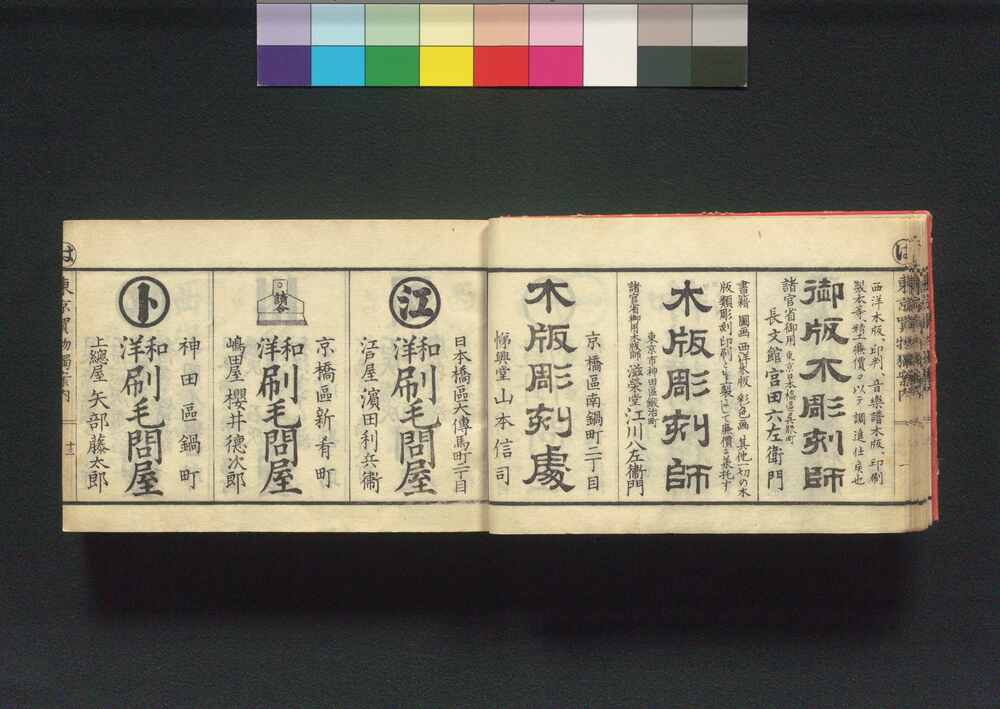 は
西洋木版、印判、音樂譜木版、印刷
製本等、精工廉價ヲ以テ調進仕候也
御版木彫刻師
諸官省御用 東京日本橋區呉服町
長文館宮田六左衛門
書籍 圖画 西洋木版 彩色画 其他一切の木
版類彫刻印刷とも上製にして廉價ニ
木版彫刻師
東京市神田區鍛治町
諸官省御用木版師 滋榮堂 江川八左衞門
京橋區南鍋町二丁目
木版彫刻處
悌興堂山本信司
日本橋區大傳馬町二丁目
江
和洋刷毛問屋
江戸屋 濱田利兵衞
京橋區新肴町
請合
和洋刷毛問屋
嶋田屋 櫻井德次郎
神田區鍋町
卜
和洋刷毛問屋
上總屋 矢部藤太郎
は
東京買物獨案内
十三